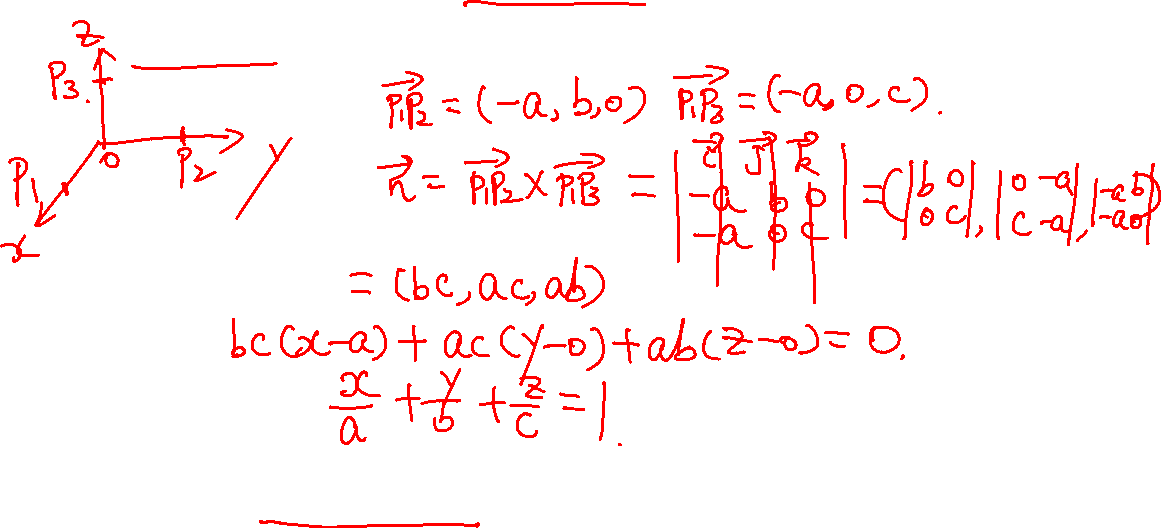 z
P₃.
O
P₂
y
P₁
x
$\overrightarrow{P_1P_2} = (-a, b, 0)$ $\overrightarrow{P_1P_3} = (-a, 0, c).$
$\vec{n} = \overrightarrow{P_1P_2} \times \overrightarrow{P_1P_3} = \begin{vmatrix} \vec{i} & \vec{j} & \vec{k} \\ -a & b & 0 \\ -a & 0 & c \end{vmatrix} = \left( \begin{vmatrix} b & 0 \\ 0 & c \end{vmatrix}, \begin{vmatrix} 0 & -a \\ c & -a \end{vmatrix}, \begin{vmatrix} -a & b \\ -a & 0 \end{vmatrix} \right)$
$= (bc, ac, ab)$
$bc(x-a) + ac(y-0) + ab(z-0) = 0.$
$\frac{x}{a} + \frac{y}{b} + \frac{z}{c} = 1.$